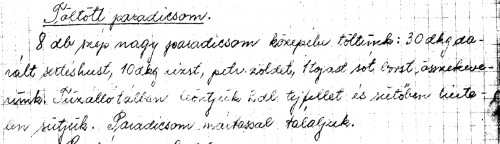 Töltött paradicsom.
8 db szép nagy paradicsom közepébe töltünk: 30 dkg da-
rált sertéshúst, 10 dkg rizst, petr. zöldet, 1 tojást sót borst, összekeve-
rünk. Tűzálló tálban leöntjük 2 dl tejfellel és sütőben hirte-
len sütjük. Paradicsom mártással tálaljuk.